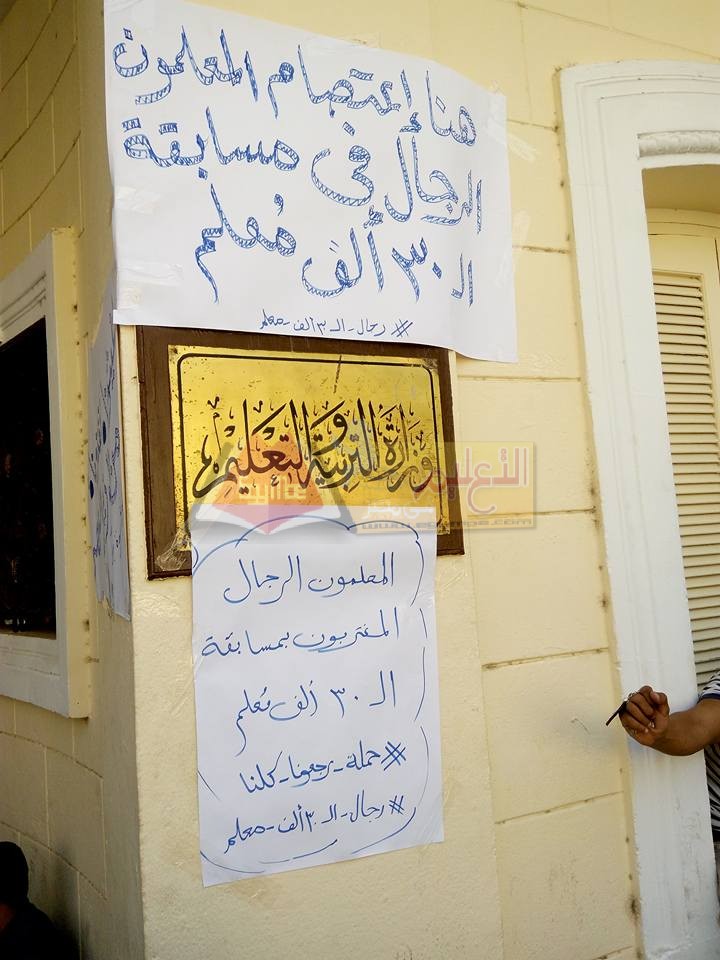 هنا إعتصام المعلمون
الرجال في مسابقة
الـ ٣٠ ألف مُعلم
# رجال-الـ ٣٠ ألف-معلم
وزارة التربية والتعليم
التعليم
المعلمون الرجال
المغتربون بمسابقة
الـ ٣٠ ألف مُعلم
# حملة-رجعونا-كلنا
# رجال-الـ ٣٠ ألف-معلم